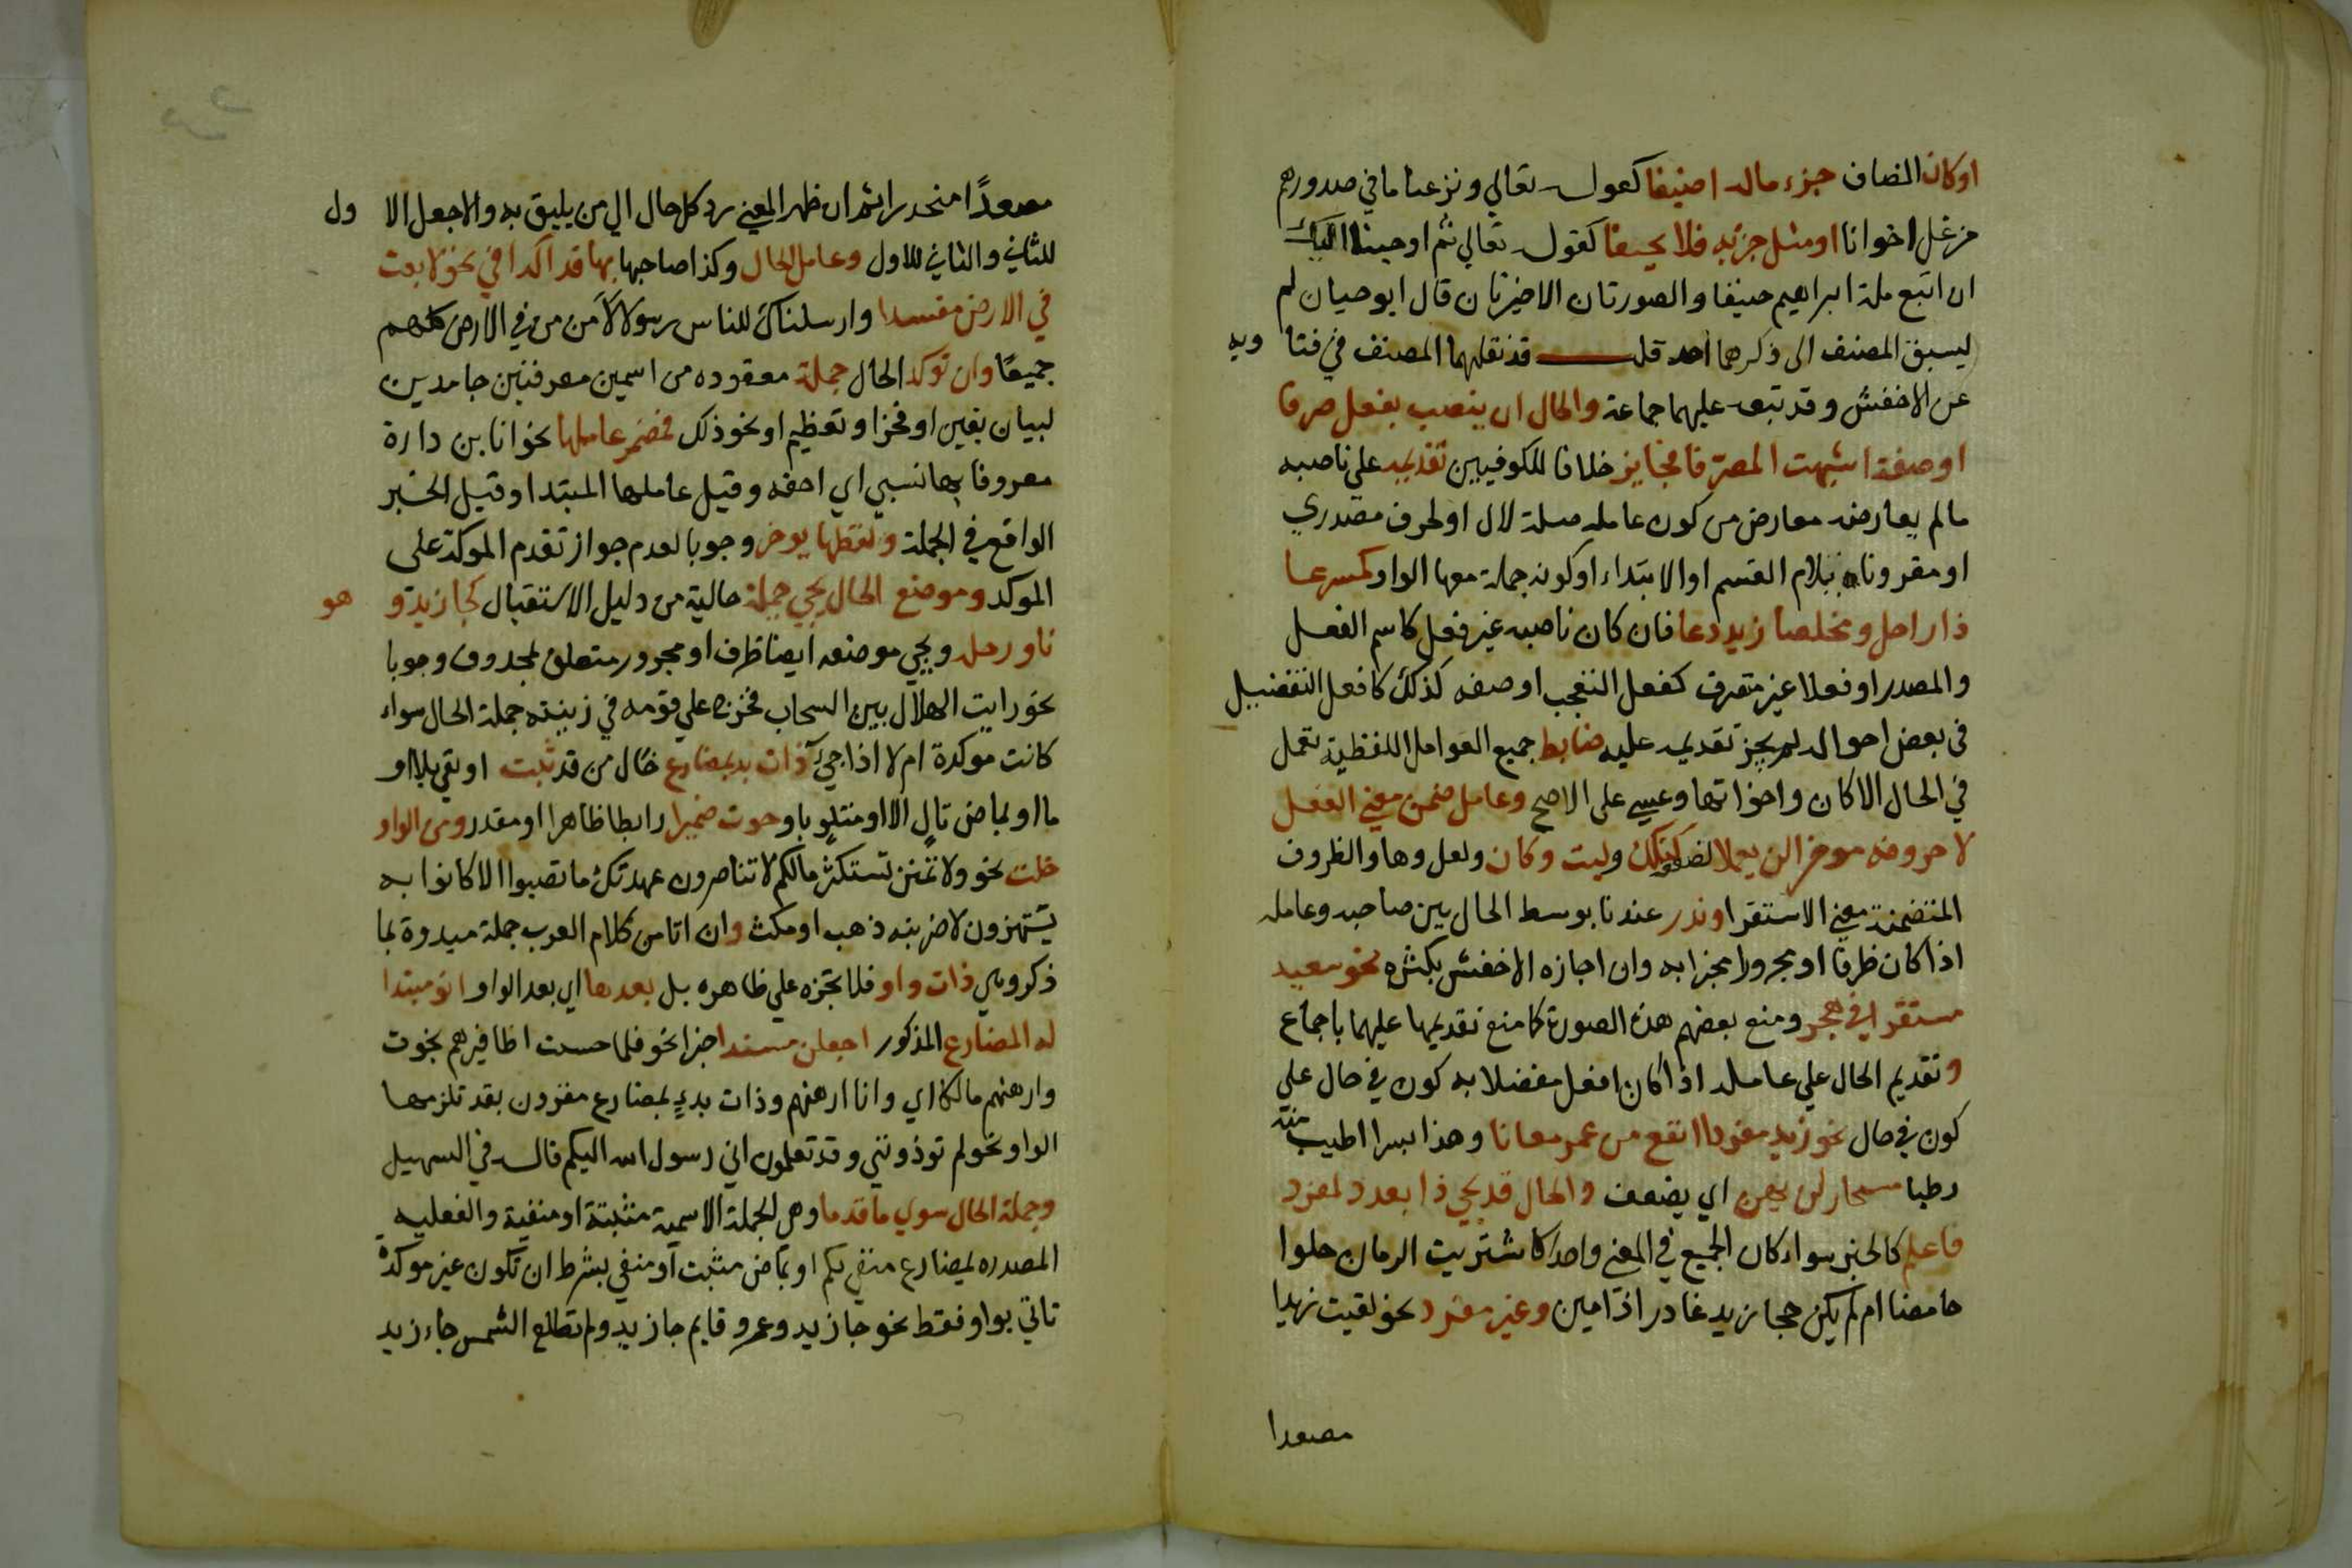 اوكان المضاف جزء ماله اضيفا كقوله تعالي ونزعنا ما في صدورهم
من غل اخوانا او مثل جزئه فلا تحيفا كقوله تعالي ثم اوحينا اليك
ان اتبع ملة ابراهيم حنيفا والصورتان الاخيرتان قال ابو حيان لم
يسبق المصنف الى ذكرهما احد قلت قد نقلهما المصنف في فتا ويه
عن الاخفش وقد تبعه عليهما جماعة والحال ان ينصب بفعل صرفا
او صفة اشبهت المصرفا فجايز خلافا للكوفيين تقديمه على ناصبه
مالم يعارضه معارض من كون عامله صلة لال او لحرف مصدري
او مقرونا بلام القسم او الابتداء او كونه جملة معها الواو كمسرعا
ذا راحل ومخلصا زيد دعا فان كان ناصبه غير فعل كاسم الفعل
والمصدر او فعلا غير متصرف كفعل التعجب او صفه كذلك كافعل التفضيل
في بعض احواله لم يجز تقديمه عليه ضابط جميع العوامل اللفظية تعمل
في الحال الا كان واخواتها وعسي على الاصح وعامل ضمن معني الفعل
لا حروفه موخرا لن يعملا لضعفه كتلك وليت وكان ولعل وها والظروف
المتضمنة معني الاستقرا وندر عندنا توسط الحال بين صاحبه وعامله
اذا كان ظرفا او مجرورا مخبرا به وان اجازه الاخفش بكثره نحو سعيد
مستقرا في هجر ومنع بعضهم هذه الصورة كما منع تقديمها عليهما باجماع
وتقديم الحال علي عامله اذا كان افعل مفضلا به كون في حال علي
كون في حال نحو زيد مفردا انفع من عمرو معانا وهذا بسرا اطيب منه
رطبا مستجاز لن يهن اي يضعف والحال قد يجي ذا تعدد لمفرد
فاعلم كالخبر سواء كان الجميع في المعني واحدا كاشتريت الرمان حلوا
حامضا ام لم يكن كجا زيد غادرا ذا مين وغير مفرد نحو لقيت زيدا
مصعدا
مصعدًا منحدرا ثم ان ظهر المعني رد كل حال الي من يليق به والا جعل الا ول
للثاني والثاني للاول وعامل الحال وكذا صاحبها بها قد اكدا في نحو لا تعث
في الارض مفسدا وارسلناك للناس رسولا لآمن من في الارض كلهم
جميعًا وان توكد الحال جملة معقوده من اسمين معرفتين جامدين
لبيان يقين او فخر او تعظيم او نحو ذلك فمضمر عاملها نحو انا بن دارة
معروفا بها نسبي اي احقه وقيل عاملها المبتدا وقيل الخبر
الواقع في الجملة ولفظها يوخر وجوبا لعدم جواز تقدم الموكد على
الموكد وموضع الحال يجي جملة خالية من دليل الاستقبال كجا زيد و هو
ناو رحله ويجي موضعه ايضا ظرف او مجرور متعلق بمحذوف وجوبا
نحو رايت الهلال بين السحاب فخرج علي قومه في زينته جملة الحال سواء
كانت موكدة ام لا اذا جيء ذات بدء بمضارع خال من قد ثبت او نفي بلا او
ما او بماض تالٍ الا او متلوٍ باو حوت ضميرا رابطا ظاهرا او مقدر ومن الواو
خلت نحو ولا تمنن تستكثر مالكم لا تناصرون عهدتك ما تصبوا الا كانوا به
يستهزون لاضربنه ذهب او مكث وان اتا من كلام العرب جملة مبدوة بما
ذكر وهي ذات واو فلا تجره علي ظاهره بل بعدها اي بعد الواو انو مبتدا
له المضارع المذكور اجعلن مسندا خبرا نحو فلما خشيت اظافيرهم نجوت
وارهنهم مالكا اي وانا ارهنهم وذات بدء بمضارع مقرون بقد تلزمها
الواو نحو لم توذونني وقد تعلمون اني رسول الله اليكم قاله في التسهيل
وجملة الحال سوي ما قدما وهي الجملة الاسمية مثبتة او منفية والفعليه
المصدره بمضارع منفي بلم او بماض مثبت او منفي بشرط ان تكون غير موكدة
تاتي بواو فقط نحو جا زيد وعمرو قايم جا زيد ولم تطلع الشمس جاء زيد